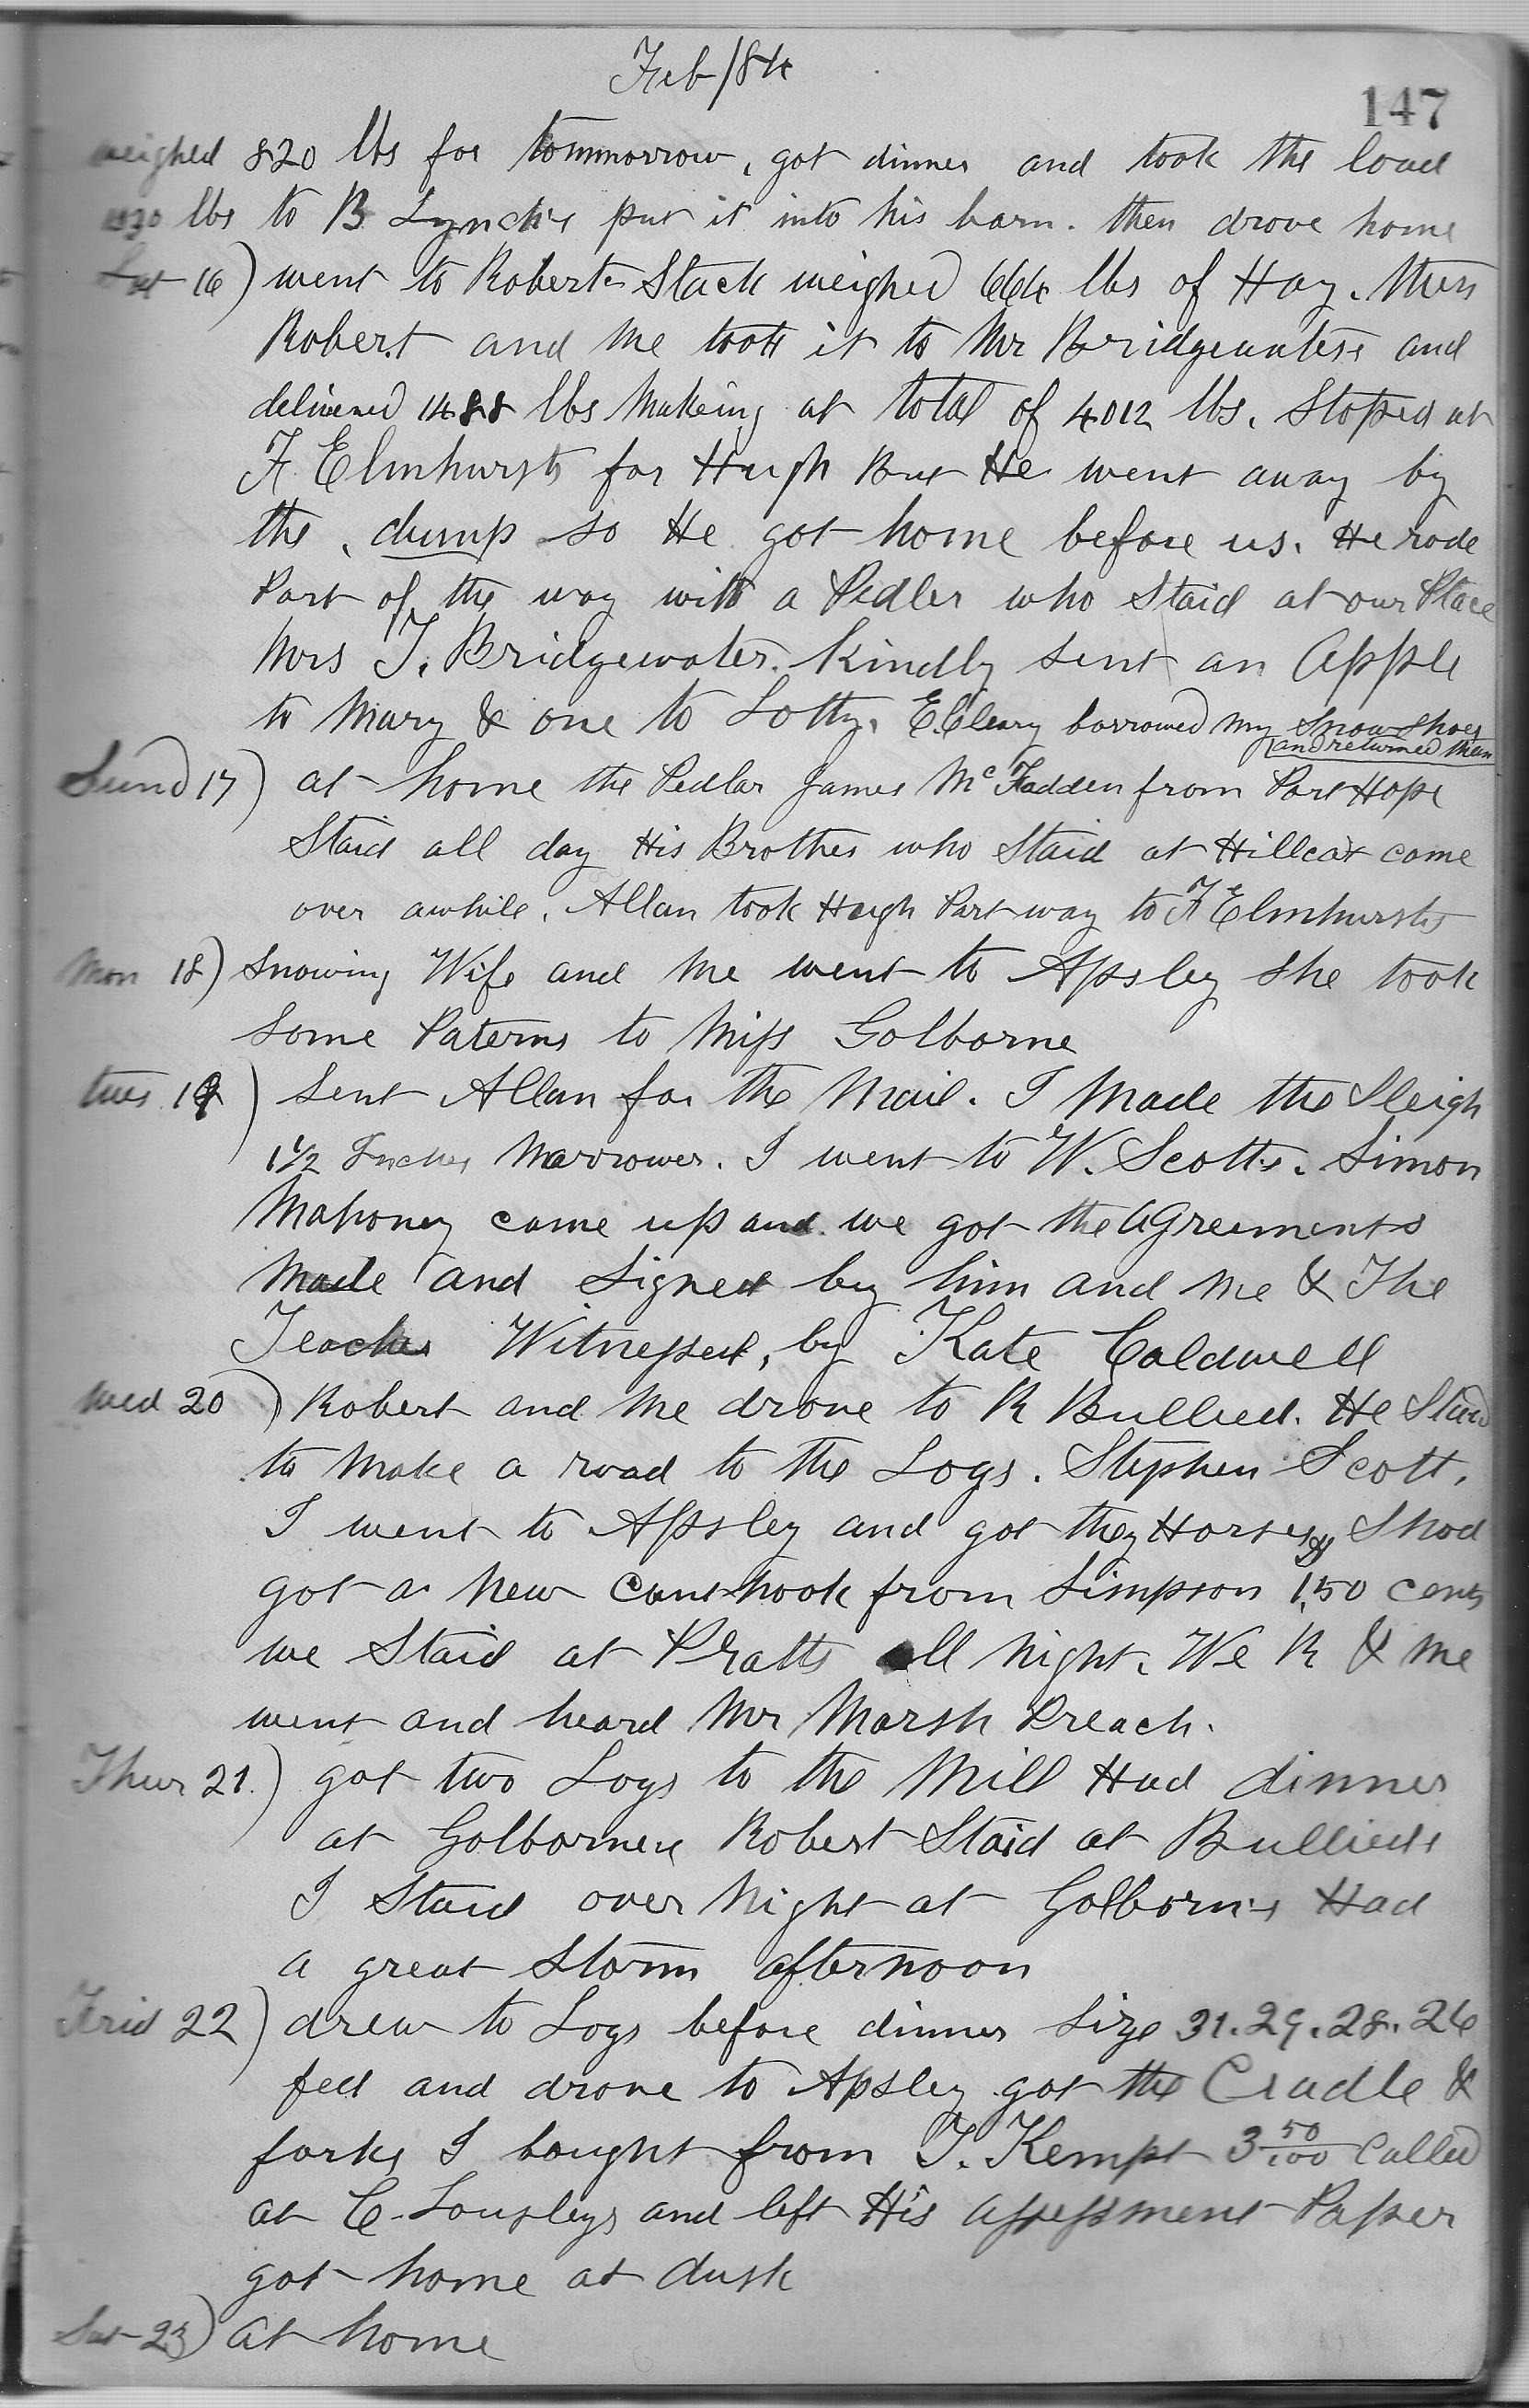 Feb/84
147
weighed 820 lbs for tommorrow, got dinner and took the load
lbs to B Lynch's put it into his barn. then drove home
Sat 16) went to Roberts Stack weighed 664 lbs of Hay. then
Robert and me took it to Mr Bridgewaters and
delivered 1488 lbs Makeing at total of 4012 lbs. Stoped at
F Elmhursts for Hugh But He went away by
the dump so He got home before us. He rode
Part of the way with a Pedler who Staid at our Place
Mrs J. Bridgewater. Kindly sent an Apple
to Mary & one to Lotty. E. Cleary borrowed my Snow Shoes
and returned them
Sund 17) at home the Pedlar James McFadden from Port Hope
Staid all day His Brother who Staid at Hillcar came
over awhile. Allan took Hugh Part way to F Elmhursts
Mon 18) Snowing Wife and me went to Apsley she took
some Paterns to Miss Golborne
tues 19) Sent Allan for the Mail. I Made the Sleigh
1 1/2 Inches Narrower. I went to W. Scotts. Simon
Mahoney came up and we got the Agreements
Made and Signed by him and me & The
Teacher Witnessed, by Kate Caldwell
Wed 20) Robert and me drove to R Bullied. He Staid
to Make a road to the Logs. Stephen Scott.
I went to Apsley and got the Horses Shod
got a New Canthook from Simpson 1.50 cents
we Staid at Pratts all Night. We R & me
went and heard Mr Marsh Preach.
Thur 21.) got two Logs to the Mill Had dinner
at Golbornes Robert Staid at Bullieds
I Staid over Night at Golborns Had
a great Storm afternoon
Frid 22) drew to Logs before dinner Size 31. 29. 28. 26
fed and drove to Apsley got the Cradle &
forks I bought from J. Kempt 3 50/100 Called
at C. Loupleys and left His Assessment Paper
got home at dusk
Sat 23) at home